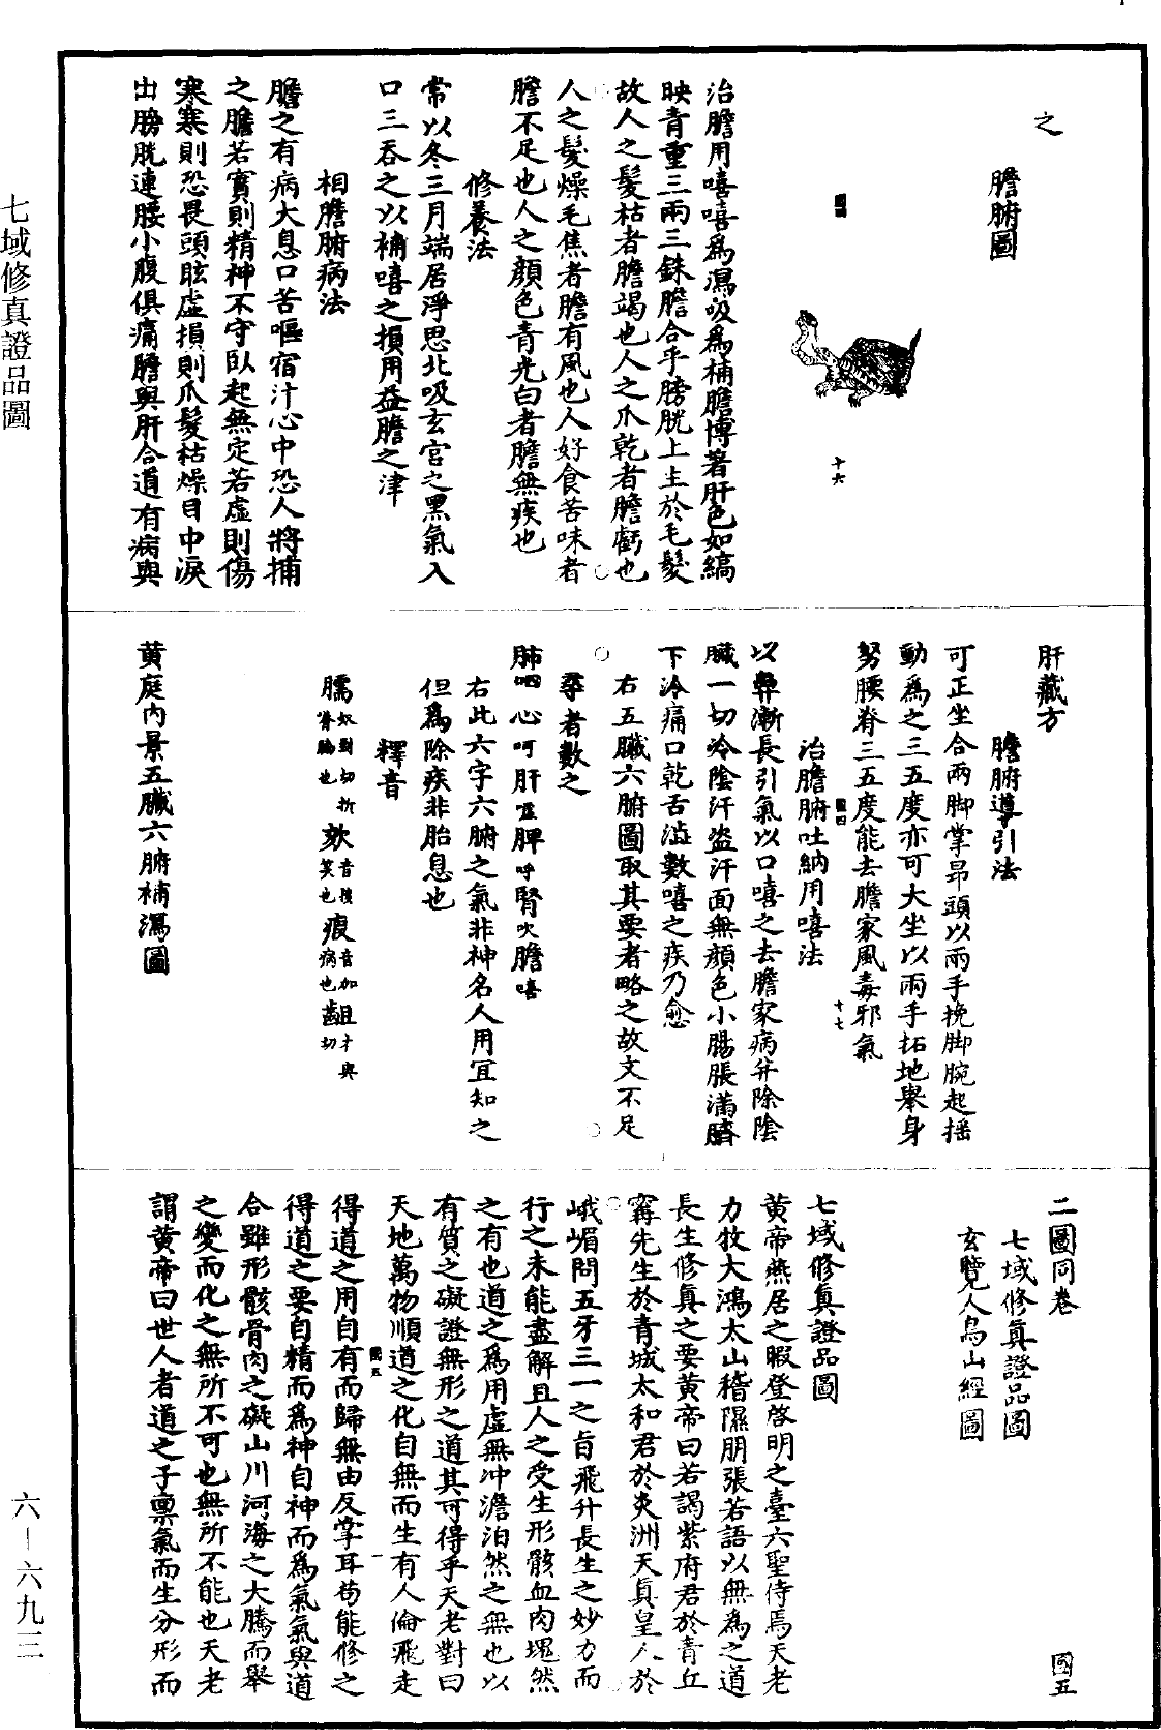 之
膽腑圖
國四
十六
治膽用嘻嘻爲瀉吸爲補膽博著肝色如縞
映青重三兩三銖膽合乎膀胱上主於毛髮
故人之髮枯者膽竭也人之爪乾者膽虧也
人之髮燥毛焦者膽有風也人好食苦味者
膽不足也人之顔色青光白者膽無疾也
修養法
常以冬三月端居淨思北吸玄宫之黑氣入
口三吞之以補嘻之損用益膽之津
相膽腑病法
膽之有病大息口苦嘔宿汁心中恐人將捕
之膽若實則精神不守卧起無定若虛則傷
寒寒則恐畏頭眩虛損則爪髮枯燥目中淚
出膀胱連腰小腹俱痛膽與肝合道有病與
肝藏方
膽腑導引法
可正坐合兩脚掌昂頭以兩手挽脚腕起摇
動爲之三五度亦可大坐以兩手拓地舉身
努腰脊三五度能去膽家風毒邪氣
國四
十七
治膽腑吐納用嘻法
以鼻漸長引氣以口嘻之去膽家病并除陰
臟一切冷陰汗盗汗面無顔色小腸脹滿臍
下冷痛口乾舌澁數嘻之疾乃愈
右五臟六腑圖取其要者略之故文不足
尋者數之
肺呬心呵肝嘘脾呼腎吹膽嘻
右此六字六腑之氣非神名人用宜知之
但爲除疾非胎息也
釋音
臑奴到切折脊膓也欬音換笑也瘕音加病也齟才與切
黄庭内景五臟六腑補瀉圖
二圖同卷
國五
七域修真證品圖
玄覽人鳥山經圖
七域修真證品圖
黄帝燕居之暇登啓明之臺六聖侍焉天老
力牧大鴻太山稽隰朋張若語以無為之道
長生修真之要黄帝曰若謁紫府君於青丘
甯先生於青城太和君於炎洲天真皇人於
峨嵋問五牙三一之旨飛升長生之妙力而
行之未能盡解且人之受生形骸血肉塊然
之有也道之爲用虛無冲澹泊然之無也以
有質之礙證無形之道其可得乎天老對曰
天地萬物順道之化自無而生有人倫飛走
國五
一
得道之用自有而歸無由反掌耳苟能修之
得道之要自精而爲神自神而爲氣氣與道
合雖形骸骨肉之礙山川河海之大騰而舉
之變而化之無所不可也無所不能也天老
謂黄帝曰世人者道之子禀氣而生分形而
七域修真證品圖
六—六九三